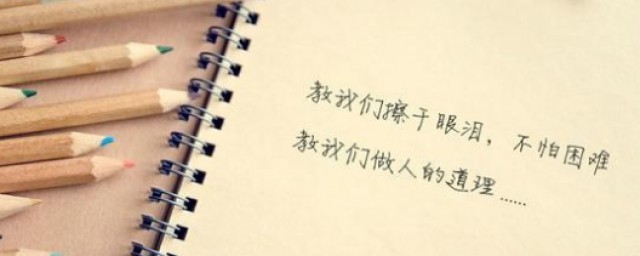 教我们擦干眼泪，不怕困难
教我们做人的道理……